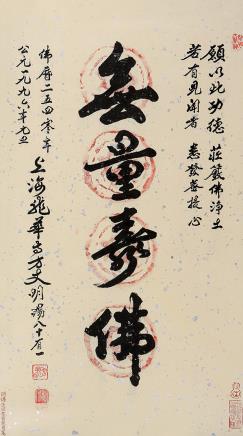 願以此功德 莊嚴佛淨土
若有見聞者 悉發菩提心
無量壽佛
佛曆二五四零年
公元一九九六年元旦
上海龍華寺方丈明暘八十有一